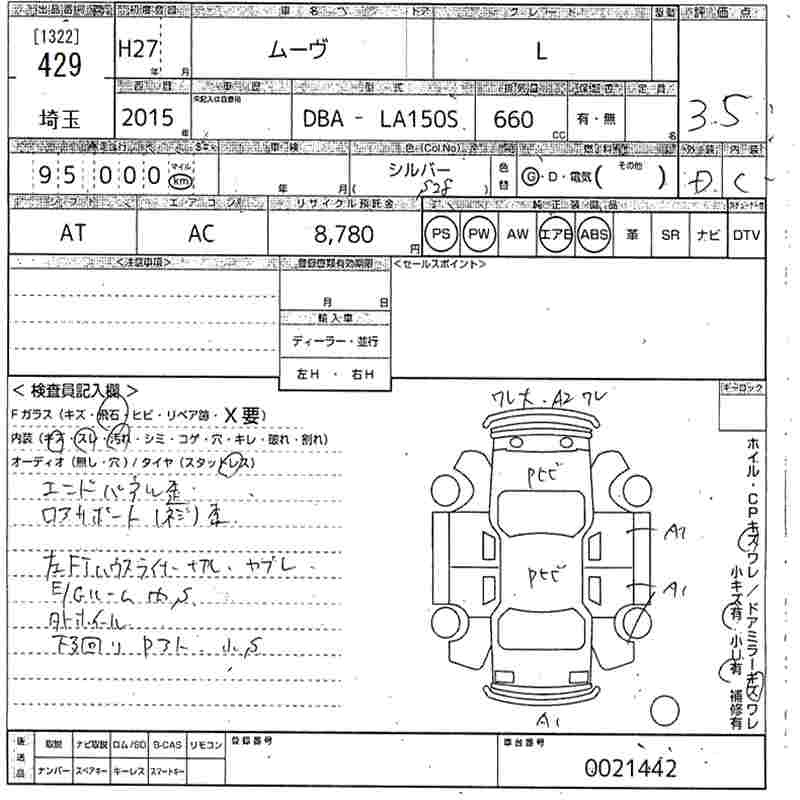 出品番号 初度登録 車名 ドア グレード 駆動 評価点
[1322]
429 H27 年 月 ムーヴ L
3.5
車歴 型式 排気量 定員
埼玉 2015 年 DBA - LA150S 660 CC 有・無 名
車検 色(Col.No) 燃料 外装 内装
95,000 マイル km 年 月 シルバー S28 色替 G・D・電気( その他 ) D C
シフト エアコン リサイクル預託金 純正装備品
AT AC 8,780 円 PS PW AW エアB ABS 革 SR ナビ DTV
<注意事項> 登録書類有効期限 <セールスポイント>
月 日
輸入車
ディーラー・並行
左H ・ 右H
< 検査員記入欄 > キーロック
ワレ大・A2 ワレ
Fガラス(キズ・飛石・ヒビ・リペア跡・X要)
内装(キズ・スレ・汚れ・シミ・コゲ・穴・キレ・破れ・割れ)
オーディオ(無し・穴)/タイヤ(スタッドレス)
Pヒビ
エンドパネル歪
ロアサポート(ネジ)歪
A1
左Fインナーハウスライナー切レ・ヤブレ
Pヒビ
E/Gルーム内S
A1
外ホイール
下回りPアト・小S
A1
ホイル・CPキズワレ/ドアミラーキズワレ
小キズ有・小U有 補修有
後送品 取説 ナビ取説 ロム/SD B-CAS リモコン 登録番号 車台番号
ナンバー スペアキー キーレス スマートキー 0021442